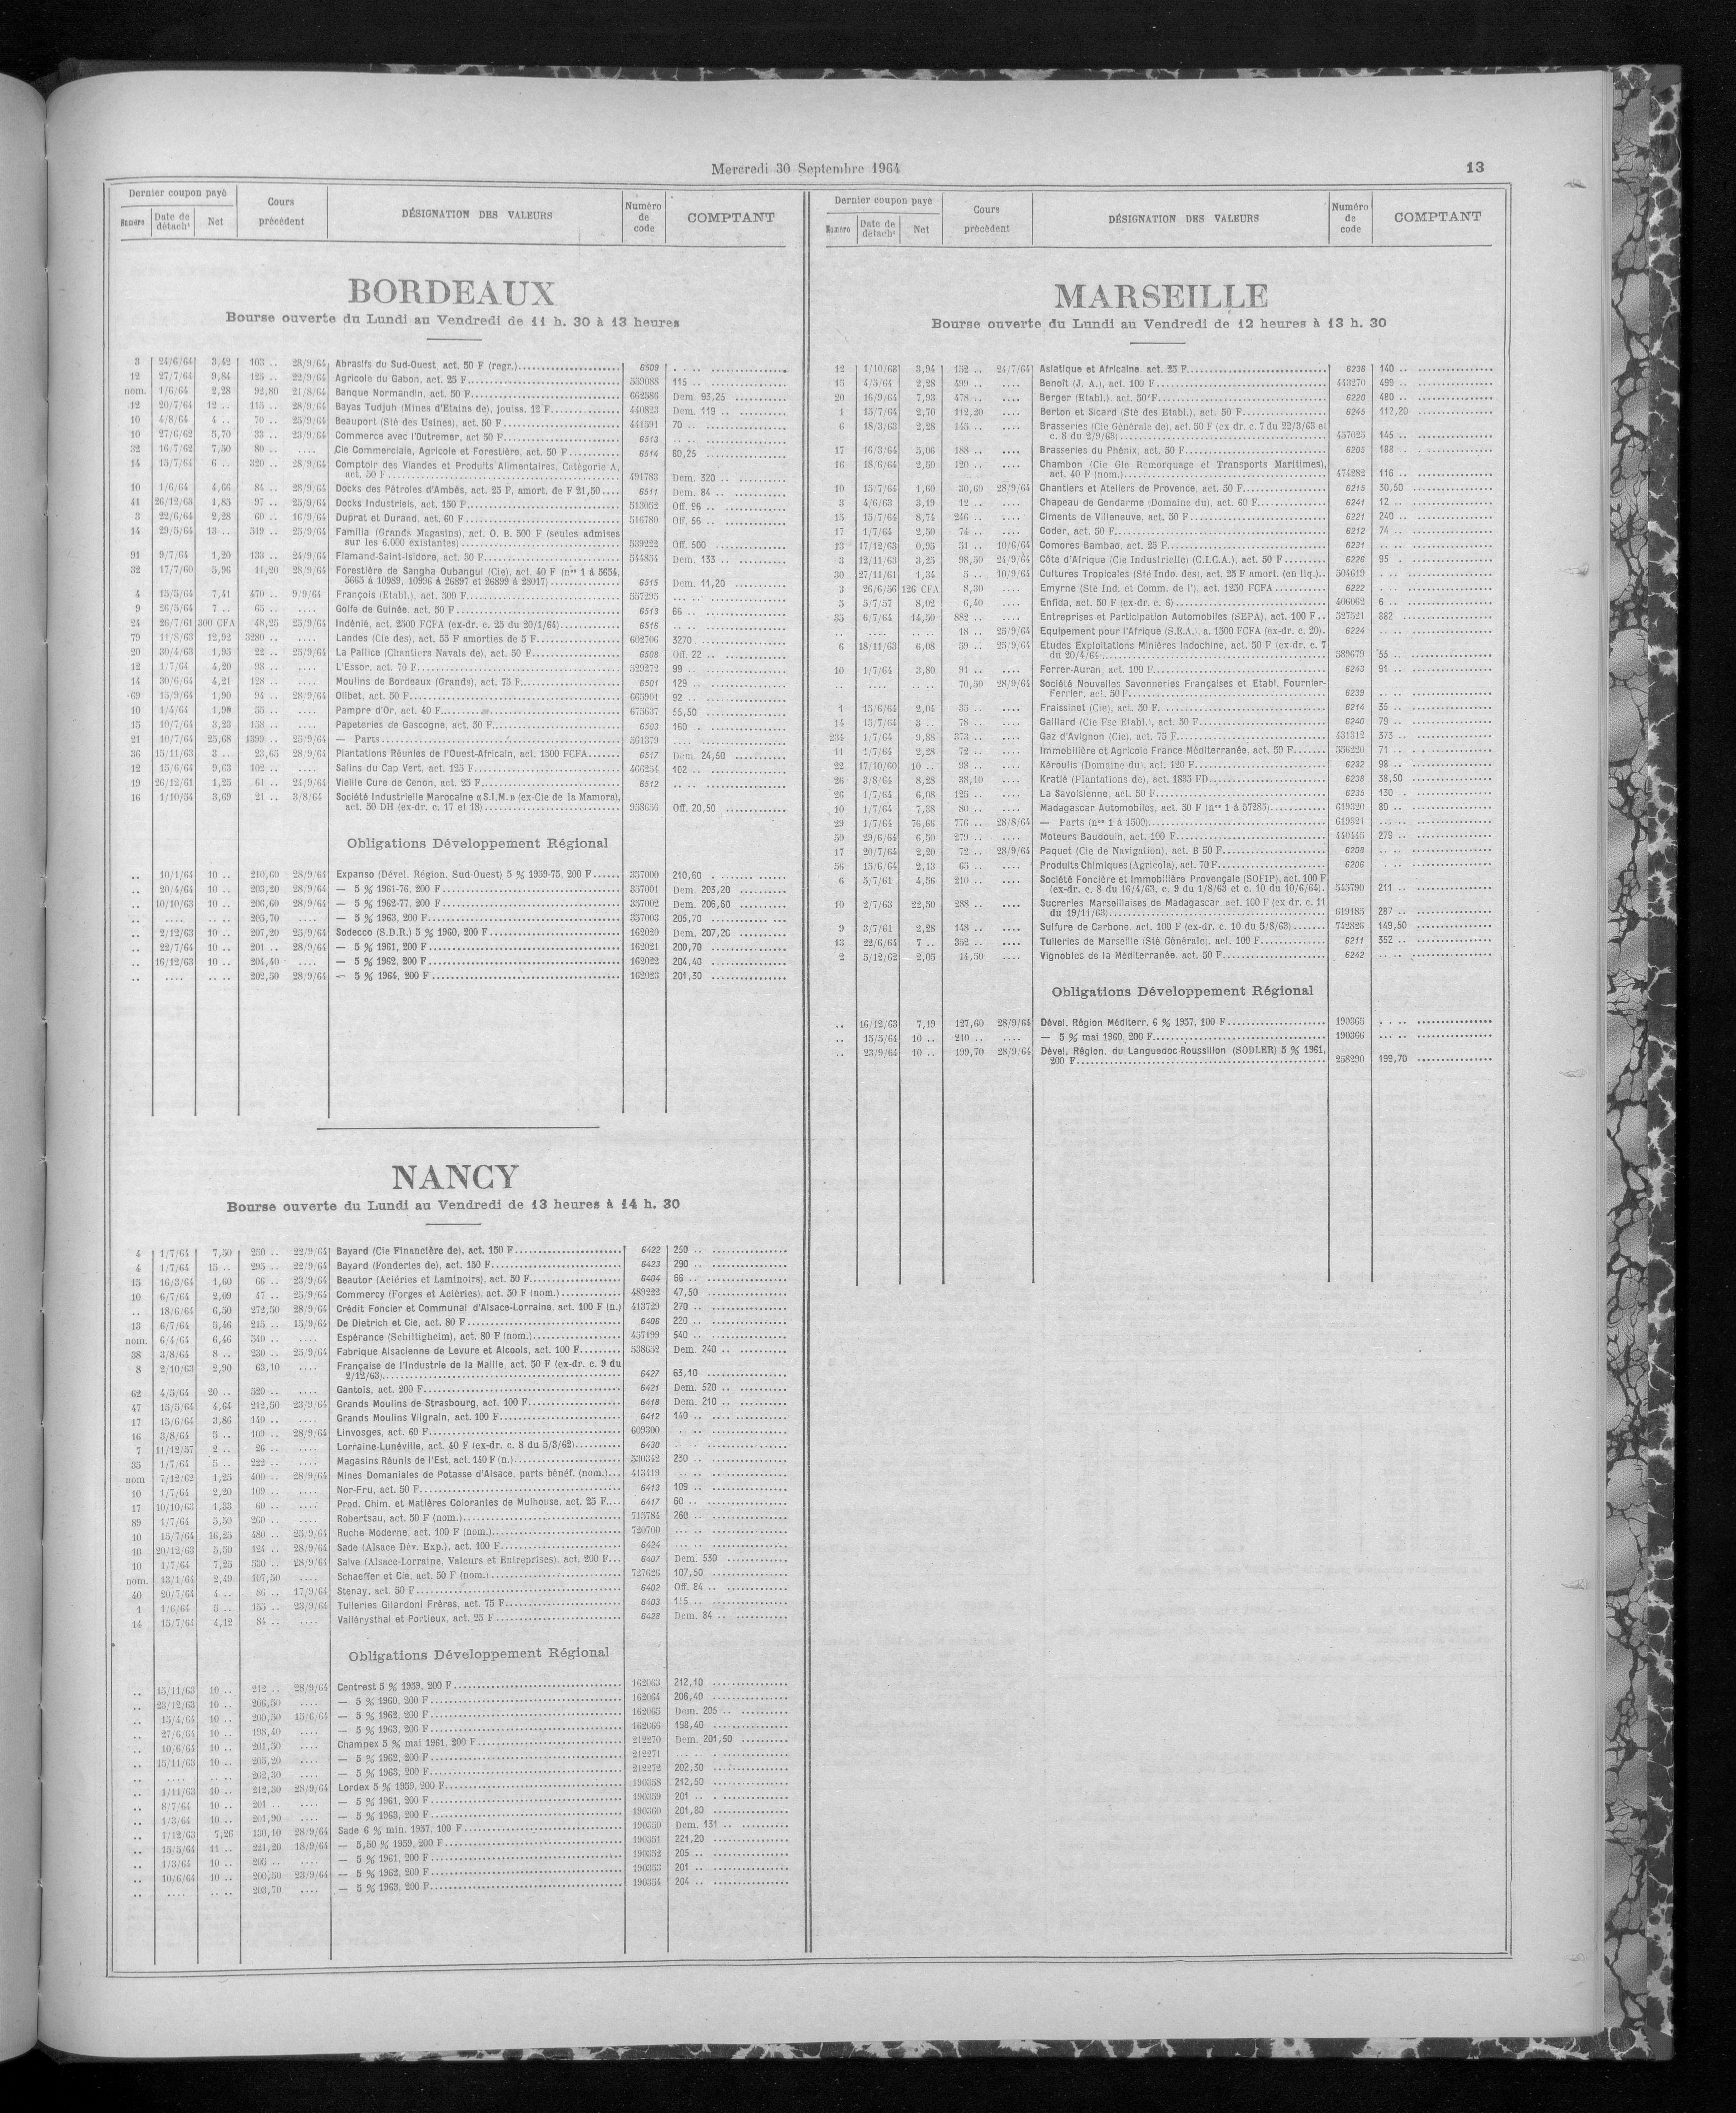 Mercredi 30 Septembre 1964
13
Dernier coupon payé
Cours précédent
DÉSIGNATION DES VALEURS
Numéro de code
COMPTANT
Date de détacht
Net
BORDEAUX
Bourse ouverte du Lundi au Vendredi de 11 h. 30 à 13 heures
3 24/6/64 3,42 103 .. 28/9/64 Abrasifs du Sud-Ouest act. 50 F (regr.) 6509
12 27/7/64 9,84 125 .. 22/9/64 Agricole du Gabon, act. 25 F 539088 115 ..
nom. 1/6/64 2,28 92,80 21/8/64 Banque Normandin, act. 50 F 662586 Dem. 93,25
12 20/7/64 12 .. 115 .. 28/9/64 Bayas Tudjuh (Mines d'Etains de), jouiss. 12 F 440823 Dem. 119 ..
10 4/8/64 4 .. 70 .. 25/9/64 Beauport (Sté des Usines), act. 50 F 441591 70 ..
10 27/6/62 5,70 33 .. 23/9/64 Commerce avec l'Outremer, act 50 F 6513
32 16/7/62 7,50 80 .. .... Cie Commerciale, Agricole et Forestière, act. 50 F 6514 80,25
14 15/7/64 6 .. 320 .. 28/9/64 Comptoir des Viandes et Produits Alimentaires, Catégorie A,
act. 50 F 491783 Dem. 320 ..
10 1/6/64 4,66 84 .. 28/9/64 Docks des Pétroles d'Ambès, act. 25 F, amort. de F 21,50 6511 Dem. 84 ..
41 26/12/63 1,85 97 .. 25/9/64 Docks Industriels, act. 150 F 513052 Off. 96 ..
3 22/6/64 2,28 60 .. 16/9/64 Duprat et Durand, act. 60 F 516780 Off. 56 ..
14 29/5/64 13 .. 519 .. 25/9/64 Familia (Grands Magasins), act. O. B. 500 F (seules admises
sur les 6.000 existantes) 539222 Off. 500
91 9/7/64 1,20 133 .. 24/9/64 Flamand-Saint-Isidore, act. 30 F 544854 Dem. 133 ..
32 17/7/60 5,96 11,20 28/9/64 Forestière de Sangha Oubangui (Cie), act. 40 F (nos 1 à 5634,
5665 à 10989, 10996 à 26897 et 26899 à 28017) 6515 Dem. 11,20
4 15/5/64 7,41 470 .. 9/9/64 François (Etabl.), act. 500 F 557295
9 26/5/64 7 .. 65 .. .... Golfe de Guinée, act. 50 F 6513 66 ..
24 26/7/61 300 CFA 48,25 25/9/64 Indénié, act. 2500 FCFA (ex-dr. c. 25 du 20/1/64) 6516
79 11/8/63 12,92 3280 .. .... Landes (Cie des), act. 55 F amorties de 5 F 602706 3270
20 30/4/63 1,95 22 .. 25/9/64 La Pallice (Chantiers Navals de), act. 50 F 6508 Off. 22 ..
12 1/7/64 4,20 98 .. .... L'Essor, act. 70 F 529272 99
14 30/6/64 4,21 128 .. .... Moulins de Bordeaux (Grands), act. 75 F 6501 129 ..
69 15/9/64 1,90 94 .. 28/9/64 Olibet, act. 50 F 665901 92 ..
10 1/4/64 1,90 55 .. .... Pampre d'Or, act. 40 F 675637 55,50
15 10/7/64 3,23 158 .. .... Papeteries de Gascogne, act. 50 F 6503 160 .
21 10/7/64 25,68 1399 .. 25/9/64 — Parts 561379
36 15/11/63 3 .. 23,65 28/9/64 Plantations Réunies de l'Ouest-Africain, act. 1500 FCFA 6517 Dem. 24,50
12 15/6/64 9,63 102 .. .... Salins du Cap Vert, act. 125 F 466254 102 ..
19 26/12/61 1,25 61 .. 24/9/64 Vieille Cure de Cenon, act. 25 F 6512
16 1/10/54 3,69 21 .. 3/8/64 Société Industrielle Marocaine «S.I.M.» (ex-Cie de la Mamora),
act. 50 DH (ex-dr. c. 17 et 18) 958656 Off. 20,50
Obligations Développement Régional
.. 10/1/64 10 .. 210,60 28/9/64 Expanso (Dével. Région. Sud-Ouest) 5 % 1959-75, 200 F 357000 210,60
.. 20/4/64 10 .. 203,20 28/9/64 — 5 % 1961-76, 200 F 357001 Dem. 203,20
.. 10/10/63 10 .. 206,60 28/9/64 — 5 % 1962-77, 200 F 357002 Dem. 206,60
.. .... .. .. 205,70 .... — 5 % 1963, 200 F 357003 205,70
.. 2/12/63 10 .. 207,20 25/9/64 Sodecco (S.D.R.) 5 % 1960, 200 F 162020 Dem. 207,20
.. 22/7/64 10 .. 201 .. 28/9/64 — 5 % 1961, 200 F 162021 200,70
.. 16/12/63 10 .. 204,40 .... — 5 % 1962, 200 F 162022 204,40
.. .... .. .. 202,50 28/9/64 — 5 % 1964, 200 F 162023 201,30
NANCY
Bourse ouverte du Lundi au Vendredi de 13 heures à 14 h. 30
4 1/7/64 7,50 250 .. 22/9/64 Bayard (Cie Financière de), act. 150 F 6422 250 ..
4 1/7/64 15 .. 295 .. 22/9/64 Bayard (Fonderies de), act. 150 F 6423 290 ..
15 16/3/64 1,60 66 .. 23/9/64 Beautor (Aciéries et Laminoirs), act. 50 F 6404 66 ..
10 6/7/64 2,09 47 .. 25/9/64 Commercy (Forges et Aciéries), act. 50 F (nom.) 489222 47,50
.. 18/6/64 6,50 272,50 28/9/64 Crédit Foncier et Communal d'Alsace-Lorraine, act. 100 F (n.) 413729 270 ..
13 6/7/64 5,46 215 .. 15/9/64 De Dietrich et Cie, act. 80 F 6406 220 ..
nom. 6/4/64 6,46 540 .. .... Espérance (Schiltigheim), act. 80 F (nom.) 457199 540 ..
38 3/8/64 8 .. 230 .. 25/9/64 Fabrique Alsacienne de Levure et Alcools, act. 100 F 538652 Dem. 240 ..
8 2/10/63 2,90 63,10 .... Française de l'Industrie de la Maille, act. 50 F (ex-dr. c. 9 du
2/12/63) 6427 63,10
62 4/5/64 20 .. 520 .. .... Gantois, act. 200 F 6421 Dem. 520 ..
47 15/5/64 4,64 212,50 23/9/64 Grands Moulins de Strasbourg, act. 100 F 6418 Dem. 210 ..
17 15/6/64 3,86 140 .. .... Grands Moulins Vilgrain, act. 100 F 6412 140 ..
16 3/8/64 5 .. 109 .. 28/9/64 Linvosges, act. 60 F 609300
7 11/12/57 2 .. 26 .. .... Lorraine-Lunéville, act. 40 F (ex-dr. c. 8 du 5/3/62) 6430
35 1/7/64 5 .. 222 .. .... Magasins Réunis de l'Est, act. 140 F (n.) 530342 230 ..
nom 7/12/62 1,25 400 .. 28/9/64 Mines Domaniales de Potasse d'Alsace, parts bénéf. (nom.) 413419
10 1/7/64 2,20 109 .. .... Nor-Fru, act. 50 F 6413 109 ..
17 10/10/63 1,33 60 .. .... Prod. Chim. et Matières Colorantes de Mulhouse, act. 25 F 6417 60 ..
89 1/7/64 5,50 260 .. .... Robertsau, act. 50 F (nom.) 715784 260 ..
10 15/7/64 16,25 480 .. 25/9/64 Ruche Moderne, act. 100 F (nom.) 720700
10 20/12/63 5,50 124 .. 28/9/64 Sade (Alsace Dév. Exp.), act. 100 F 6424
10 1/7/64 7,25 530 .. 28/9/64 Salve (Alsace-Lorraine, Valeurs et Entreprises), act. 200 F 6407 Dem. 530
nom. 13/1/64 2,49 107,50 .... Schaeffer et Cie, act. 50 F (nom.) 727626 107,50
40 20/7/64 4 .. 86 .. 17/9/64 Stenay, act. 50 F 6402 Off. 84 ..
1 1/6/64 5 .. 155 .. 23/9/64 Tuileries Gilardoni Frères, act. 75 F 6403
14 15/7/64 4,12 84 .. .... Vallérysthal et Portieux, act. 25 F 6428 Dem. 84 ..
Obligations Développement Régional
.. 15/11/63 10 .. 212 .. 28/9/64 Centrest 5 % 1959, 200 F 162063 212,10
.. 23/12/63 10 .. 206,50 .... — 5 % 1960, 200 F 162064 206,40
.. 15/4/64 10 .. 200,50 15/6/64 — 5 % 1962, 200 F 162065 Dem. 205 ..
.. 27/6/64 10 .. 198,40 .... — 5 % 1963, 200 F 162066 198,40
.. 10/6/64 10 .. 201,50 .... Champex 5 % mai 1961, 200 F 212270 Dem. 201,50
.. 15/11/63 10 .. 205,20 .... — 5 % 1962, 200 F 212271
.. .... .. .. 202,30 .... — 5 % 1963, 200 F 212272 202,30
.. 1/11/63 10 .. 212,30 28/9/64 Lordex 5 % 1959, 200 F 190358 212,50
.. 8/7/64 10 .. 201 .. .... — 5 % 1961, 200 F 190359 201 ..
.. 1/3/64 10 .. 201,90 .... — 5 % 1963, 200 F 190360 201,80
.. 1/12/63 7,26 130,10 28/9/64 Sade 6 % min. 1957, 100 F 190350 Dem. 131 ..
.. 15/5/64 11 .. 221,20 18/9/64 — 5,50 % 1959, 200 F 190351 221,20
.. 1/3/64 10 .. 205 .. .... — 5 % 1961, 200 F 190352 205 ..
.. 10/6/64 10 .. 200,50 23/9/64 — 5 % 1962, 200 F 190353 201 ..
.. .... .. .. 203,70 .... — 5 % 1963, 200 F 190354 204 ..
Dernier coupon payé
Cours précédent
DÉSIGNATION DES VALEURS
Numéro de code
COMPTANT
Date de détacht
Net
MARSEILLE
Bourse ouverte du Lundi au Vendredi de 12 heures à 13 h. 30
12 1/10/63 3,94 152 .. 24/7/64 Asiatique et Africaine. act. 25 F 6236 140 ..
15 4/5/64 2,28 499 .. .... Benoît (J. A.), act. 100 F 443270 499 ..
20 16/9/64 7,93 478 .. .... Berger (Etabl.), act. 50 F 6220 480 ..
1 15/7/64 2,70 112,20 .... Berton et Sicard (Sté des Etabl.), act. 50 F 6245 112,20
6 18/3/63 2,28 145 .. .... Brasseries (Cie Générale de), act. 50 F (ex dr. c. 7 du 22/3/63 et
c. 8 du 2/9/63) 457025 145 ..
17 16/3/64 5,06 188 .. .... Brasseries du Phénix, act. 50 F 6205 188 ..
16 18/6/64 2,50 120 .. .... Chambon (Cie Gle Remorquage et Transports Maritimes),
act. 40 F (nom.) 474282 116 ..
10 15/7/64 1,60 30,60 28/9/64 Chantiers et Ateliers de Provence, act. 50 F 6215 30,50
3 4/6/63 3,19 12 .. .... Chapeau de Gendarme (Domaine du), act. 60 F 6241 12 ..
15 15/7/64 8,74 246 .. .... Ciments de Villeneuve, act. 50 F 6221 240 ..
17 1/7/64 2,50 74 .. .... Coder, act. 50 F 6212 74 ..
13 17/12/63 0,95 51 .. 10/6/64 Comores Bambao, act. 25 F 6231
3 12/11/63 3,25 98,50 24/9/64 Côte d'Afrique (Cie Industrielle) (C.I.C.A.), act. 50 F 6226 95 .
30 27/11/61 1,34 5 .. 10/9/64 Cultures Tropicales (Sté Indo. des), act. 25 F amort. (en liq.) 504619
3 26/6/56 126 CFA 8,30 .... Emyrne (Sté Ind. et Comm. de l'), act. 1250 FCFA 6222
5 5/7/57 8,02 6,40 .... Enfida, act. 50 F (ex-dr. c. 6) 406062 6 ..
35 6/7/64 14,50 882 .. .... Entreprises et Participation Automobiles (SEPA), act. 100 F 527521 882
.. .... .. .. 18 .. 25/9/64 Equipement pour l'Afrique (S.E.A.), a. 1500 FCFA (ex-dr. c. 20). 6224
6 18/11/63 6,08 59 .. 25/9/64 Etudes Exploitations Minières Indochine, act. 50 F (ex-dr. c. 7
du 20/4/64 589679 55 ..
10 1/7/64 3,80 91 .. .... Ferrer-Auran, act. 100 F 6243 91 ..
.. .... .. .. 70,50 28/9/64 Société Nouvelles Savonneries Françaises et Etabl. Fournier-
Ferrier, act. 50 F 6239
1 15/6/64 2,04 35 .. .... Fraissinet (Cie), act. 50 F 6214 35 ..
14 15/7/64 3 .. 78 .. .... Gaillard (Cie Fse Etabl.), act. 50 F 6240 79 ..
234 1/7/64 9,88 373 .. .... Gaz d'Avignon (Cie), act. 75 F 431312 373 ..
11 1/7/64 2,28 72 .. .... Immobilière et Agricole France-Méditerranée, act. 50 F 556220 71 ..
22 17/10/60 10 .. 98 .. .... Kéroulis (Domaine du), act. 120 F 6232 98 ..
26 3/8/64 8,28 38,10 .... Kratié (Plantations de), act. 1835 FD 6238 38,50
26 1/7/64 6,08 125 .. .... La Savoisienne, act. 50 F 6235 130 ..
10 1/7/64 7,38 80 .. .... Madagascar Automobiles, act. 50 F (nos 1 à 57285) 619320 80 ..
29 1/7/64 76,66 776 .. 28/8/64 — Parts (nos 1 à 1500) 619321
50 29/6/64 6,50 279 .. .... Moteurs Baudouin, act. 100 F 440445 279 ..
17 20/7/64 2,20 72 .. 28/9/64 Paquet (Cie de Navigation), act. B 50 F 6209
56 15/6/64 2,13 65 .. .... Produits Chimiques (Agricola), act. 70 F 6206
6 5/7/61 4,56 210 .. .... Société Foncière et Immobilière Provençale (SOFIP), act. 100 F
(ex-dr. c. 8 du 16/4/63, c. 9 du 1/8/63 et c. 10 du 10/6/64). 545790 211 ..
10 2/7/63 22,50 288 .. .... Sucreries Marseillaises de Madagascar, act. 100 F (ex dr. c. 11
du 19/11/63) 619185 287 ..
9 3/7/61 2,28 148 .. .... Sulfure de Carbone, act. 100 F (ex-dr. c. 10 du 5/8/63) 742826 149,50
13 22/6/64 7 .. 352 .. .... Tuileries de Marseille (Sté Générale), act. 100 F 6211 352 ..
2 5/12/62 2,05 14,50 .... Vignobles de la Méditerranée, act. 50 F 6242
Obligations Développement Régional
.. 16/12/63 7,19 127,60 28/9/64 Dével. Région Méditerr. 6 % 1957, 100 F 190365
.. 15/5/64 10 .. 210 .. .... — 5 % mai 1960, 200 F 190366
.. 23/9/64 10 .. 199,70 28/9/64 Dével. Région. du Languedoc-Roussillon (SODLER) 5 % 1961,
200 F 258290 199,70